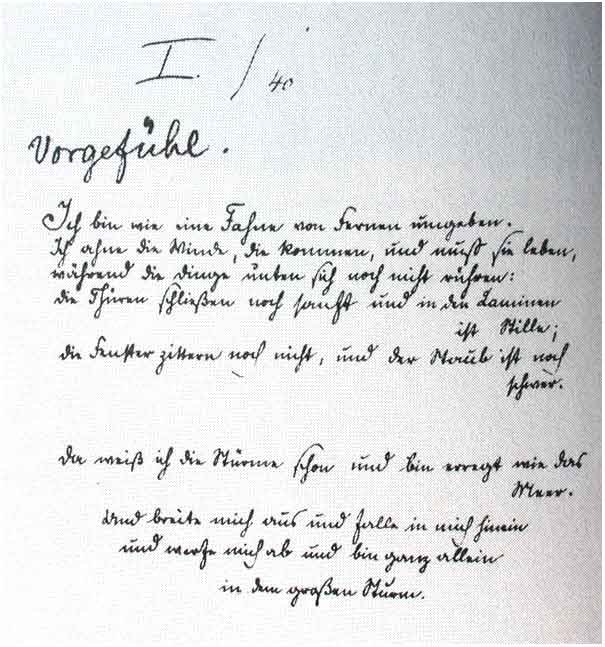 I. / 40
Vorgefühl.
Ich bin wie eine Fahne von Fernen umgeben.
Ich ahne die Winde, die kommen, und muß sie leben,
während die Dinge unten sich noch nicht rühren:
die Thüren schließen noch sanft und in den Kaminen
ist Stille;
die Fenster zittern noch nicht, und der Staub ist noch
schwer.
Da weiß ich die Stürme schon und bin erregt wie das
Meer.
Und breite mich aus und falle in mich hinein
und werfe mich ab und bin ganz allein
in dem großen Sturm.